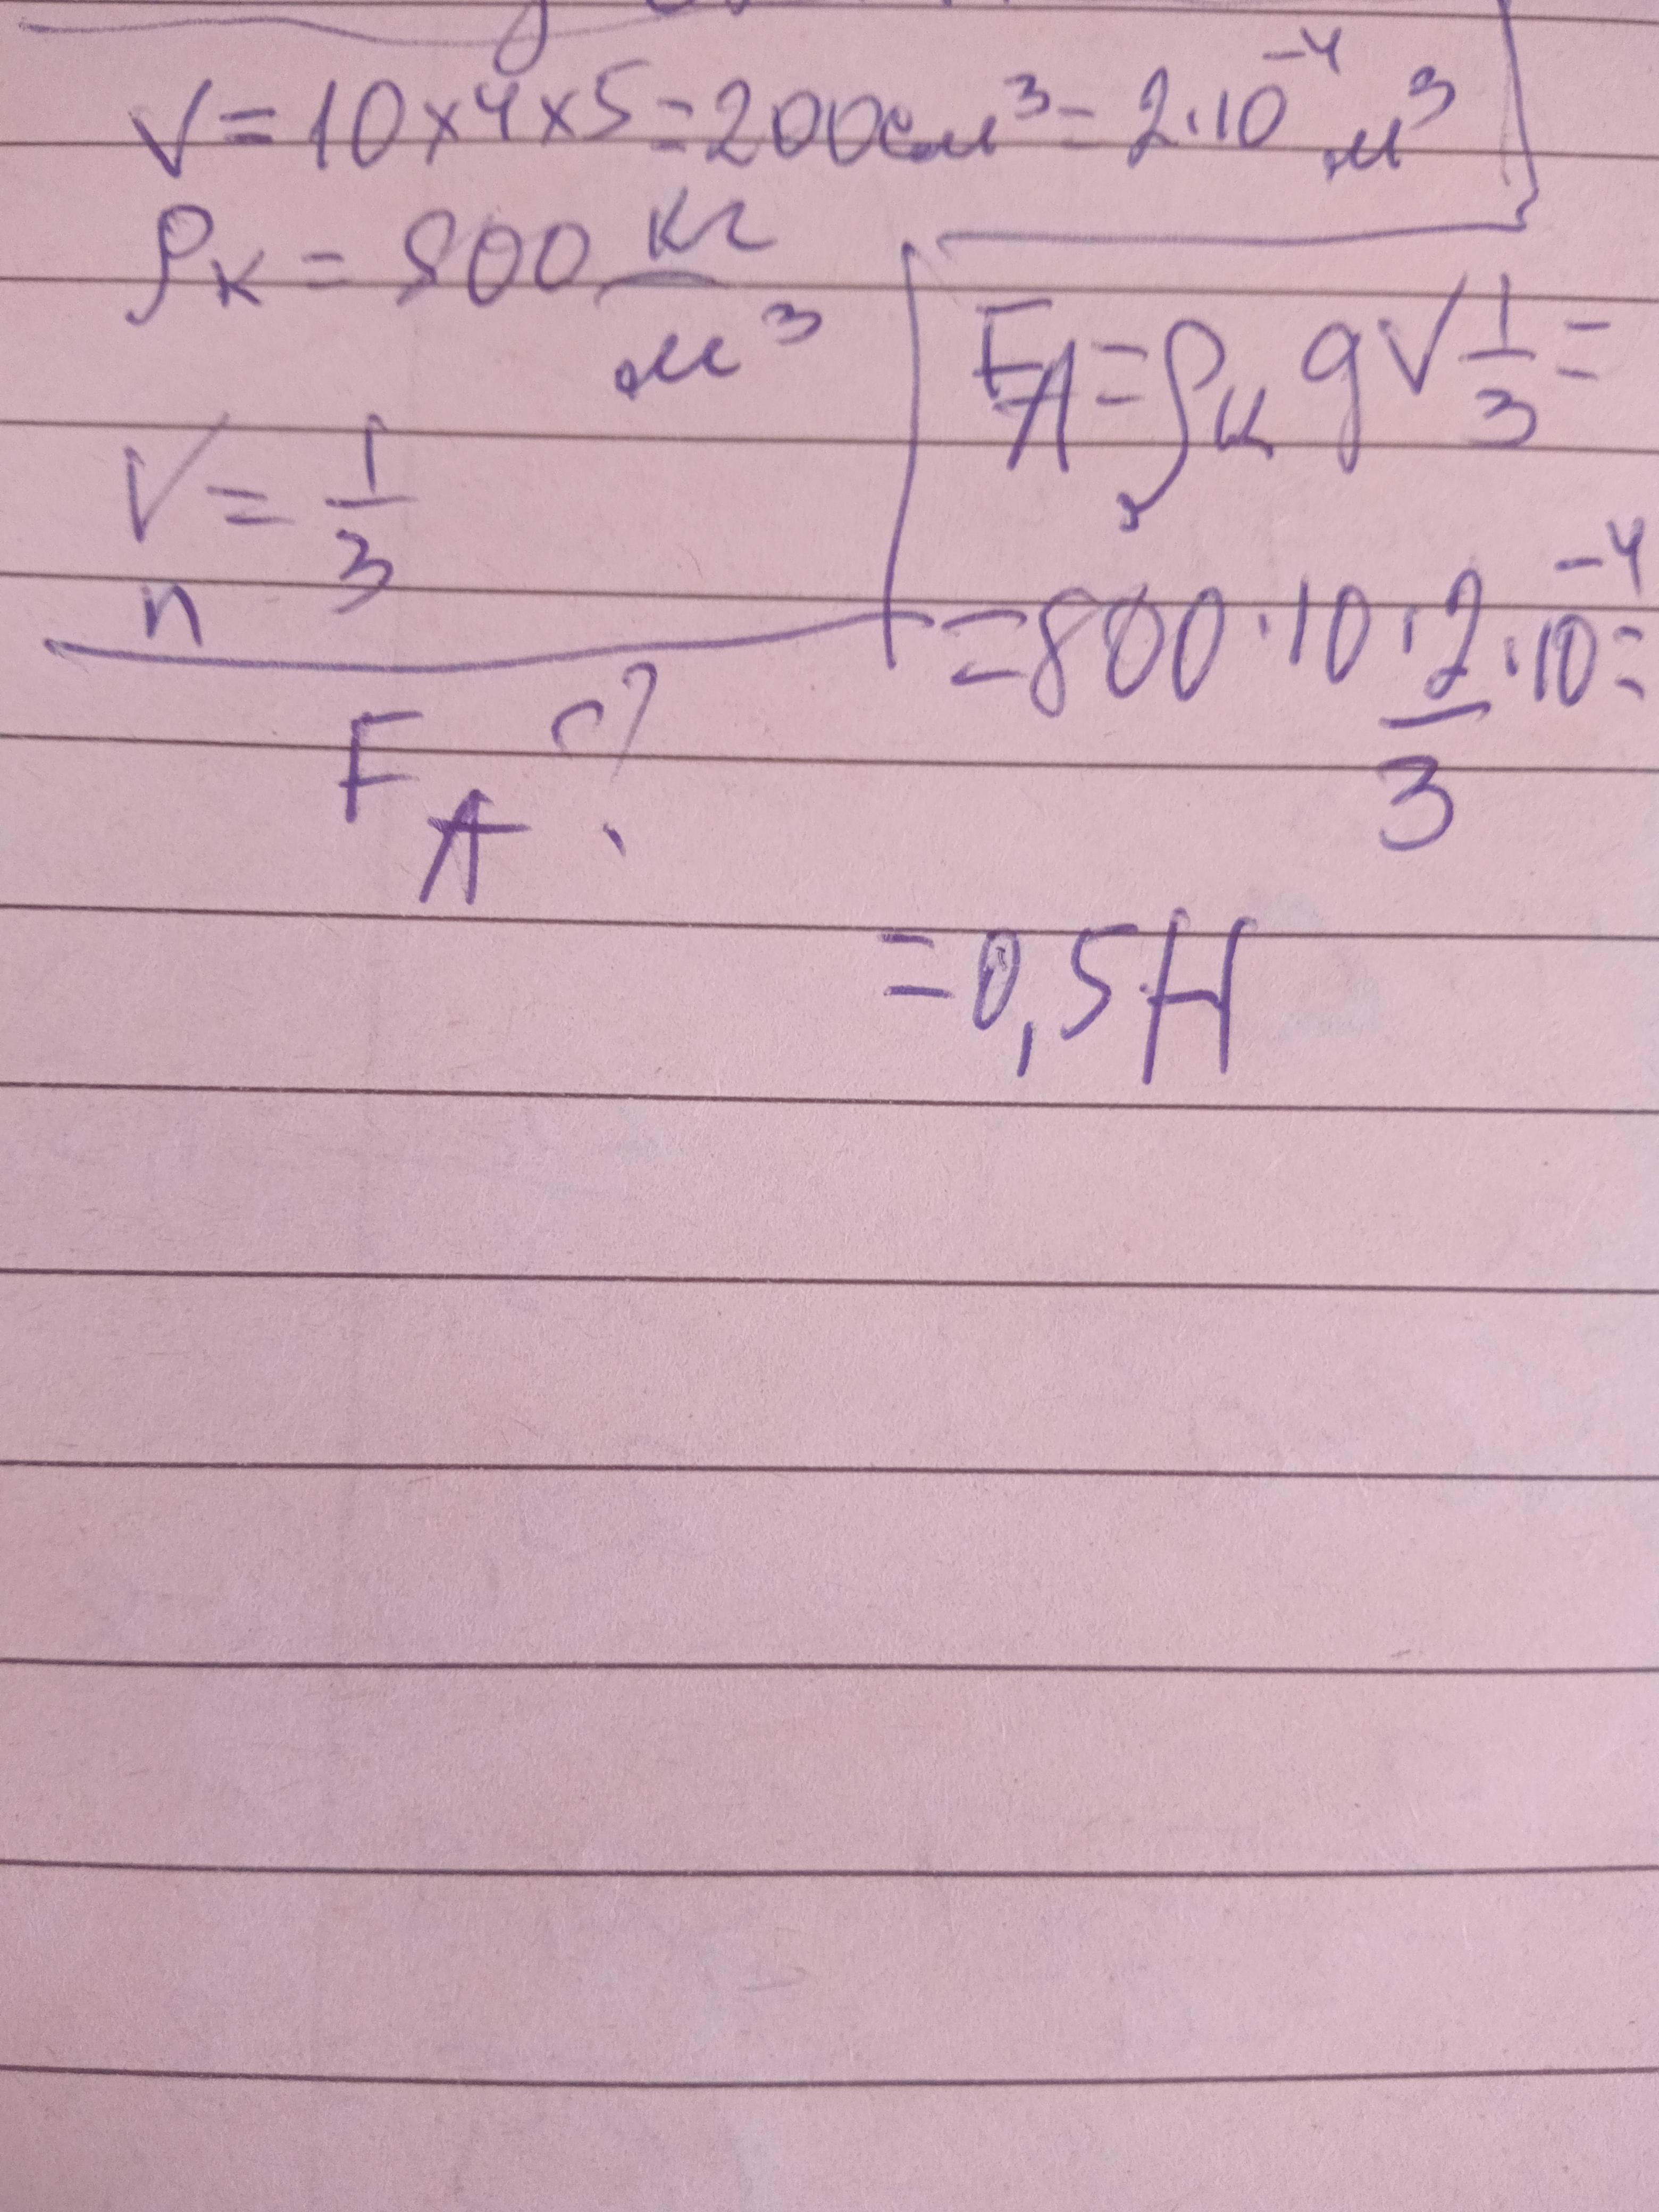 V = 10 x 4 x 5 = 200 см³ = 2·10⁻⁴ м³
ρк = 800 кг/м³
Vп = 1/3
FA ?
FA = ρк g V 1/3 =
= 800·10·2/3·10⁻⁴ =
= 0,5 Н